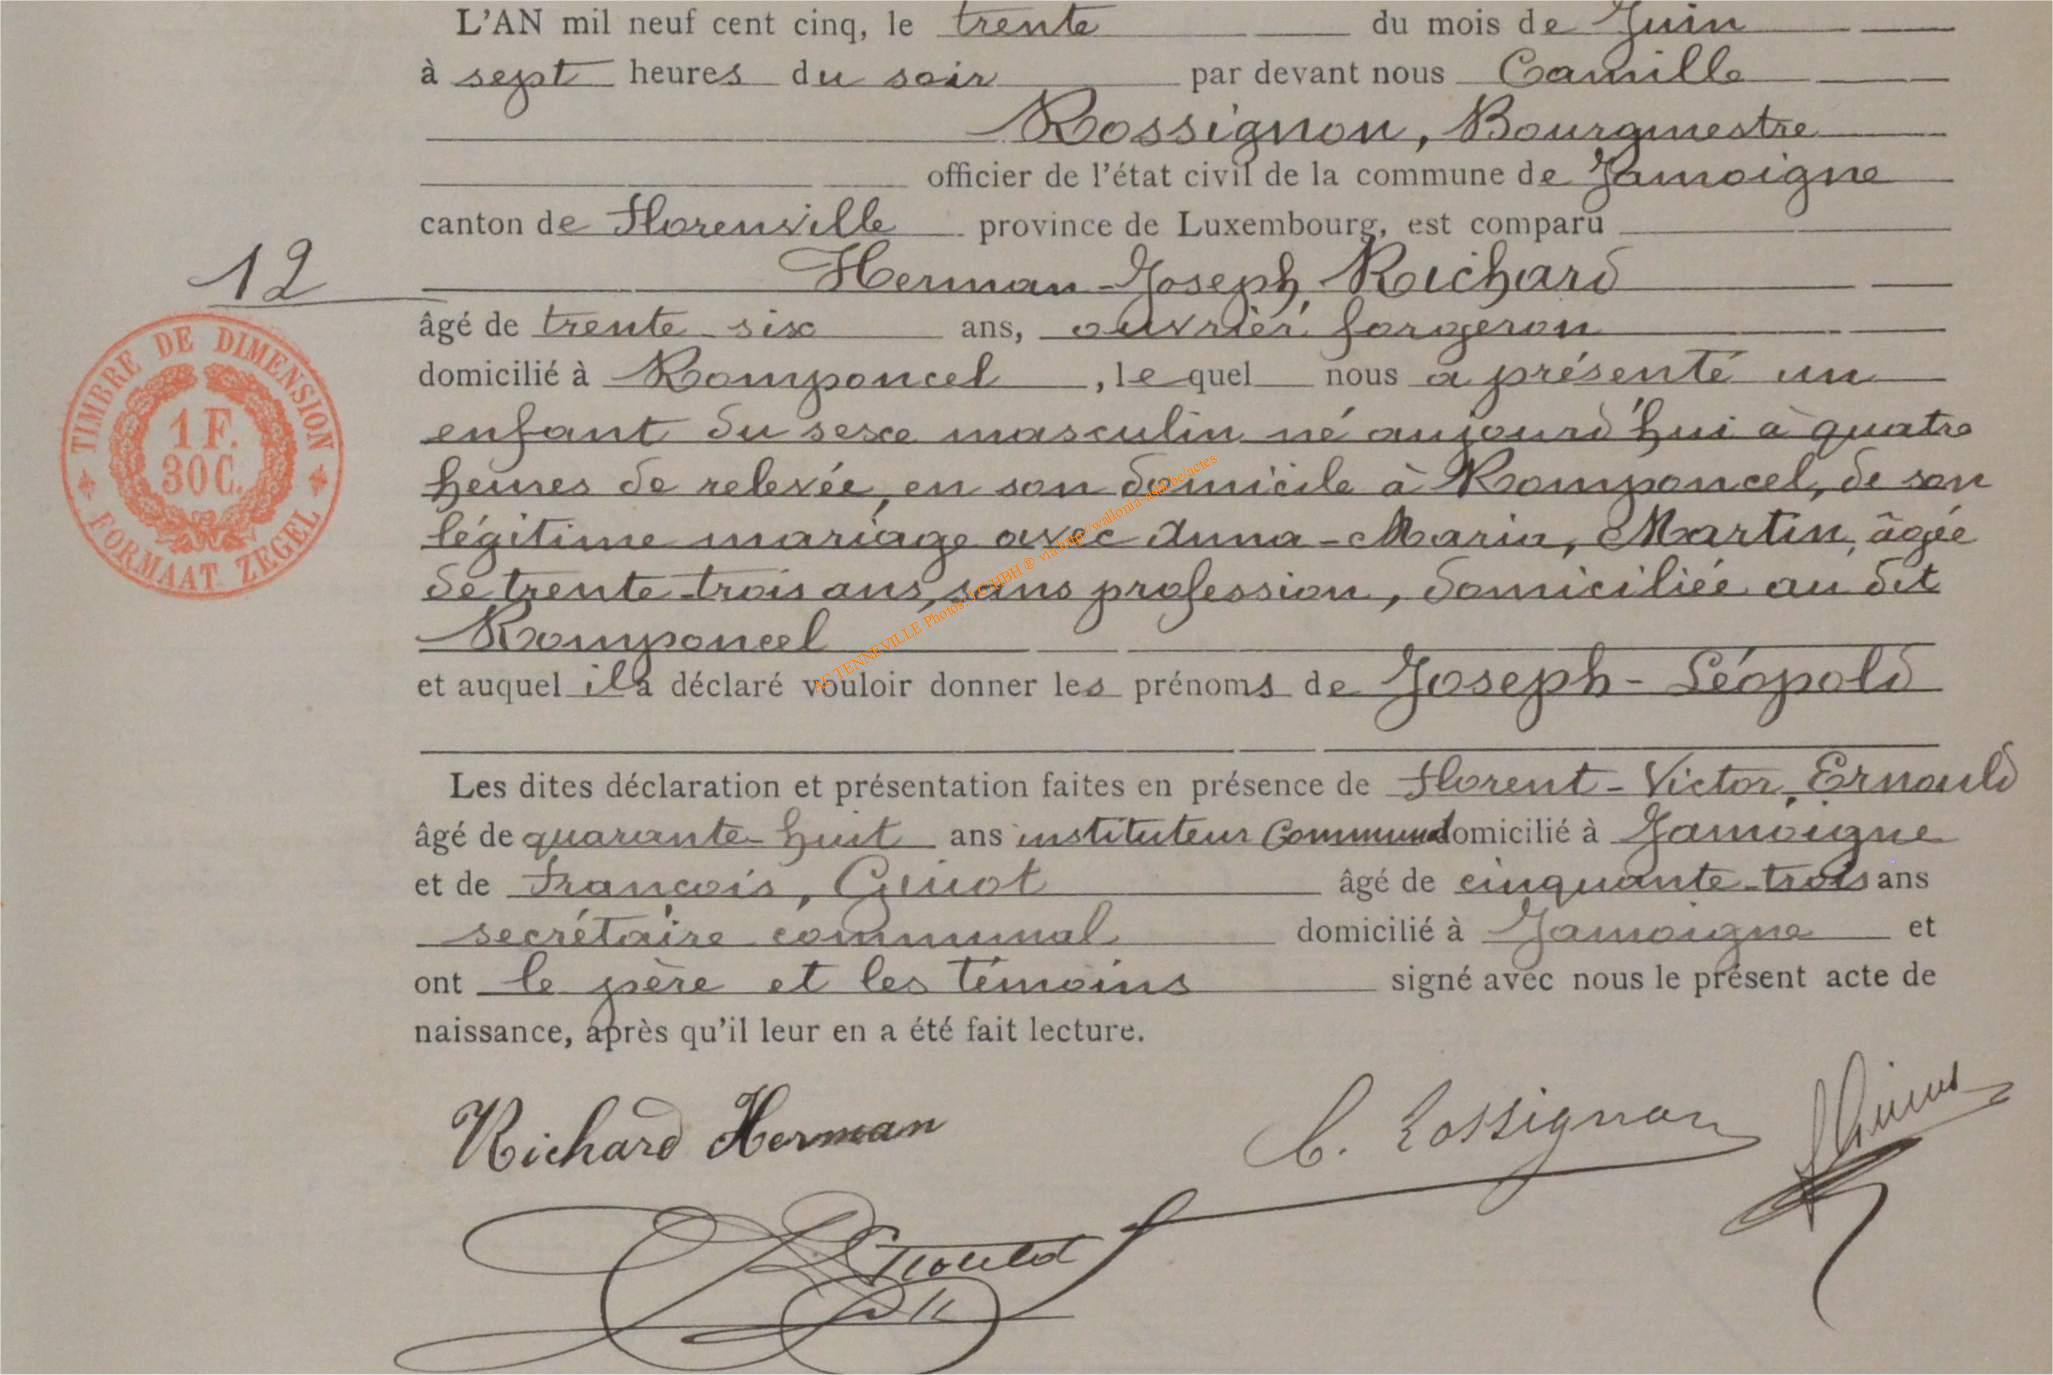 L'AN mil neuf cent cinq, le trente du mois de Juin
à sept heures du soir par devant nous Camille
Rossignon, Bourgmestre
officier de l'état civil de la commune de Jamoigne
canton de Florenville province de Luxembourg, est comparu
12
Herman-Joseph, Richard
âgé de trente six ans, ouvrier forgeron
domicilié à Romponcel, lequel nous a présenté un
enfant du sexe masculin né aujourd'hui à quatre
heures de relevée, en son domicile à Romponcel, de son
légitime mariage avec Anna-Maria, Martin, âgée
de trente-trois ans, sans profession, domiciliée au dit
Romponcel
et auquel il a déclaré vouloir donner les prénoms de Joseph-Léopold
Les dites déclaration et présentation faites en présence de Florent-Victor, Ernould
âgé de quarante-huit ans instituteur Communal domicilié à Jamoigne
et de François, Guiot âgé de cinquante-trois ans
secrétaire communal domicilié à Jamoigne et
ont le père et les témoins signé avec nous le présent acte de
naissance, après qu'il leur en a été fait lecture.
TIMBRE DE DIMENSION
1 F.
30 C.
FORMAAT ZEGEL
Richard Herman
C. Rossignon
Ernould